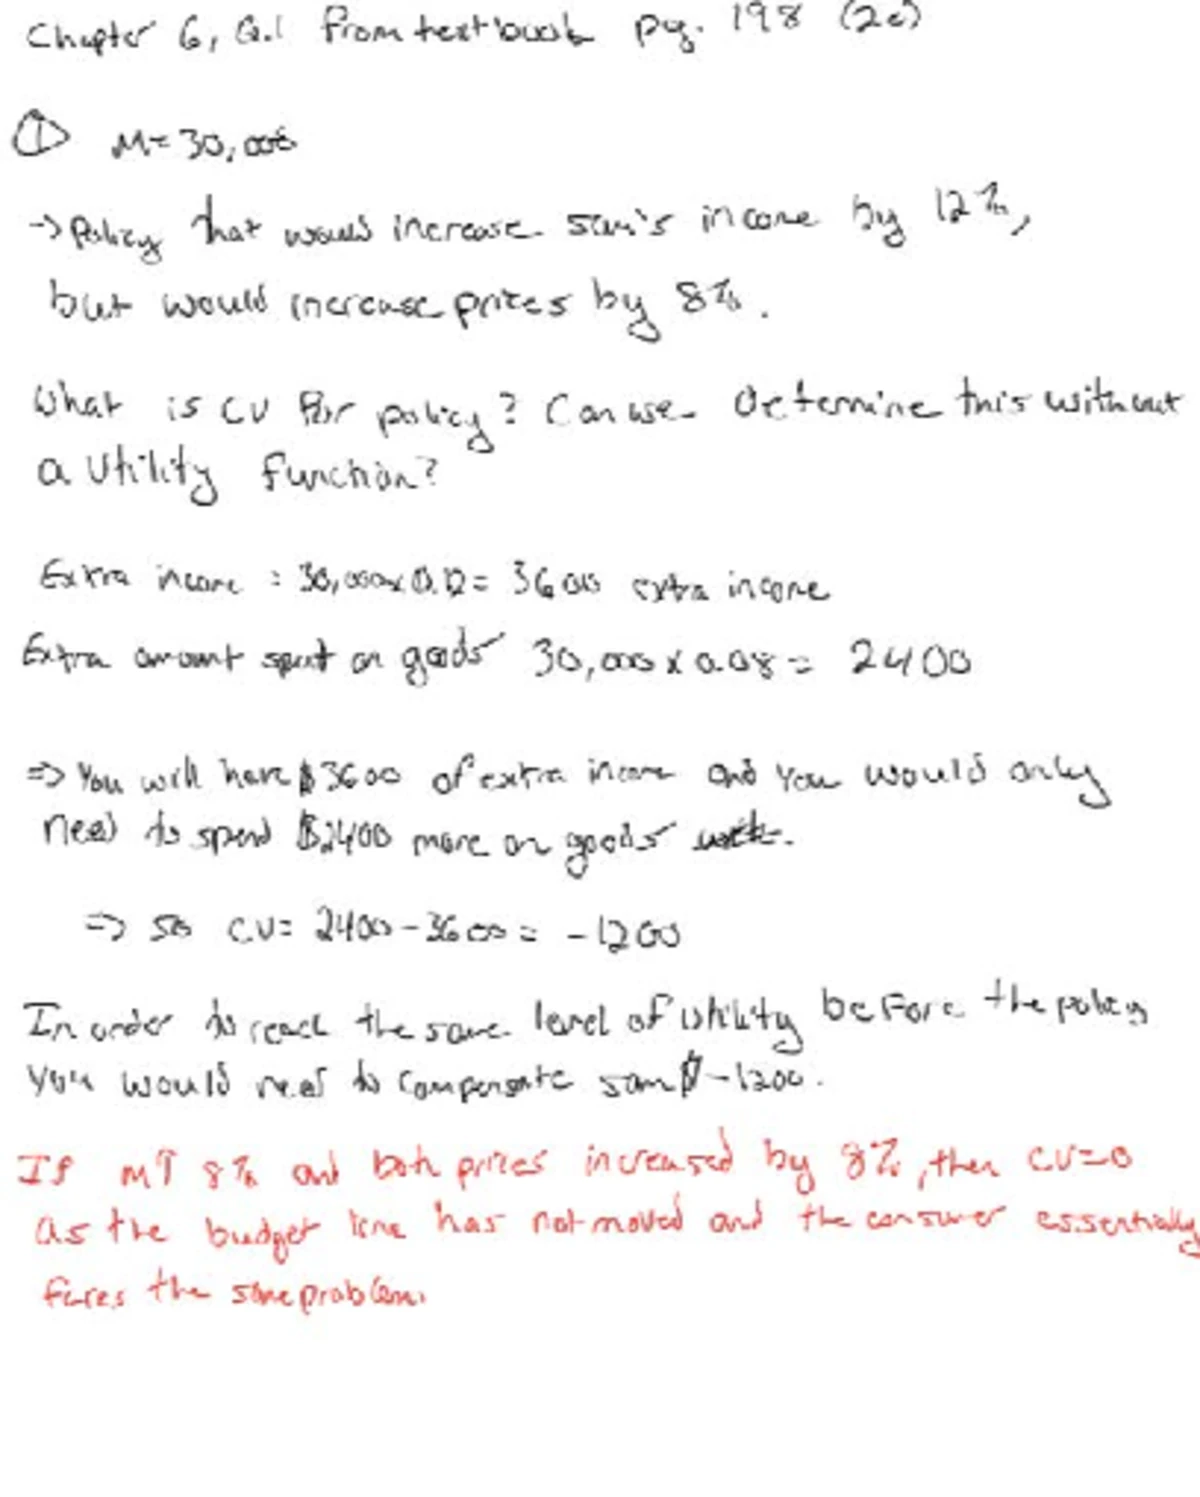 Chapter 6, Q.1 from textbook pg. 198 (2e)
① M=30,000
→ Policy that would increase sam's income by 12%,
but would increase prices by 8%.
What is CV for policy? Can we determine this without
a utility function?
Extra income = 30,000x0.12 = 3600 extra income
Extra amount spent on goods 30,000 x 0.08 = 2400
⇒ You will have $3600 of extra income and you would only
need to spend $2400 more on goods
⇒ so CV= 2400-3600 = -1200
In order to reach the same level of utility before the policy
you would need to compensate sam $-1200.
If M↑ 8% and both prices increased by 8%, then CV=0
as the budget line has not moved and the consumer essentially
faces the same problem.